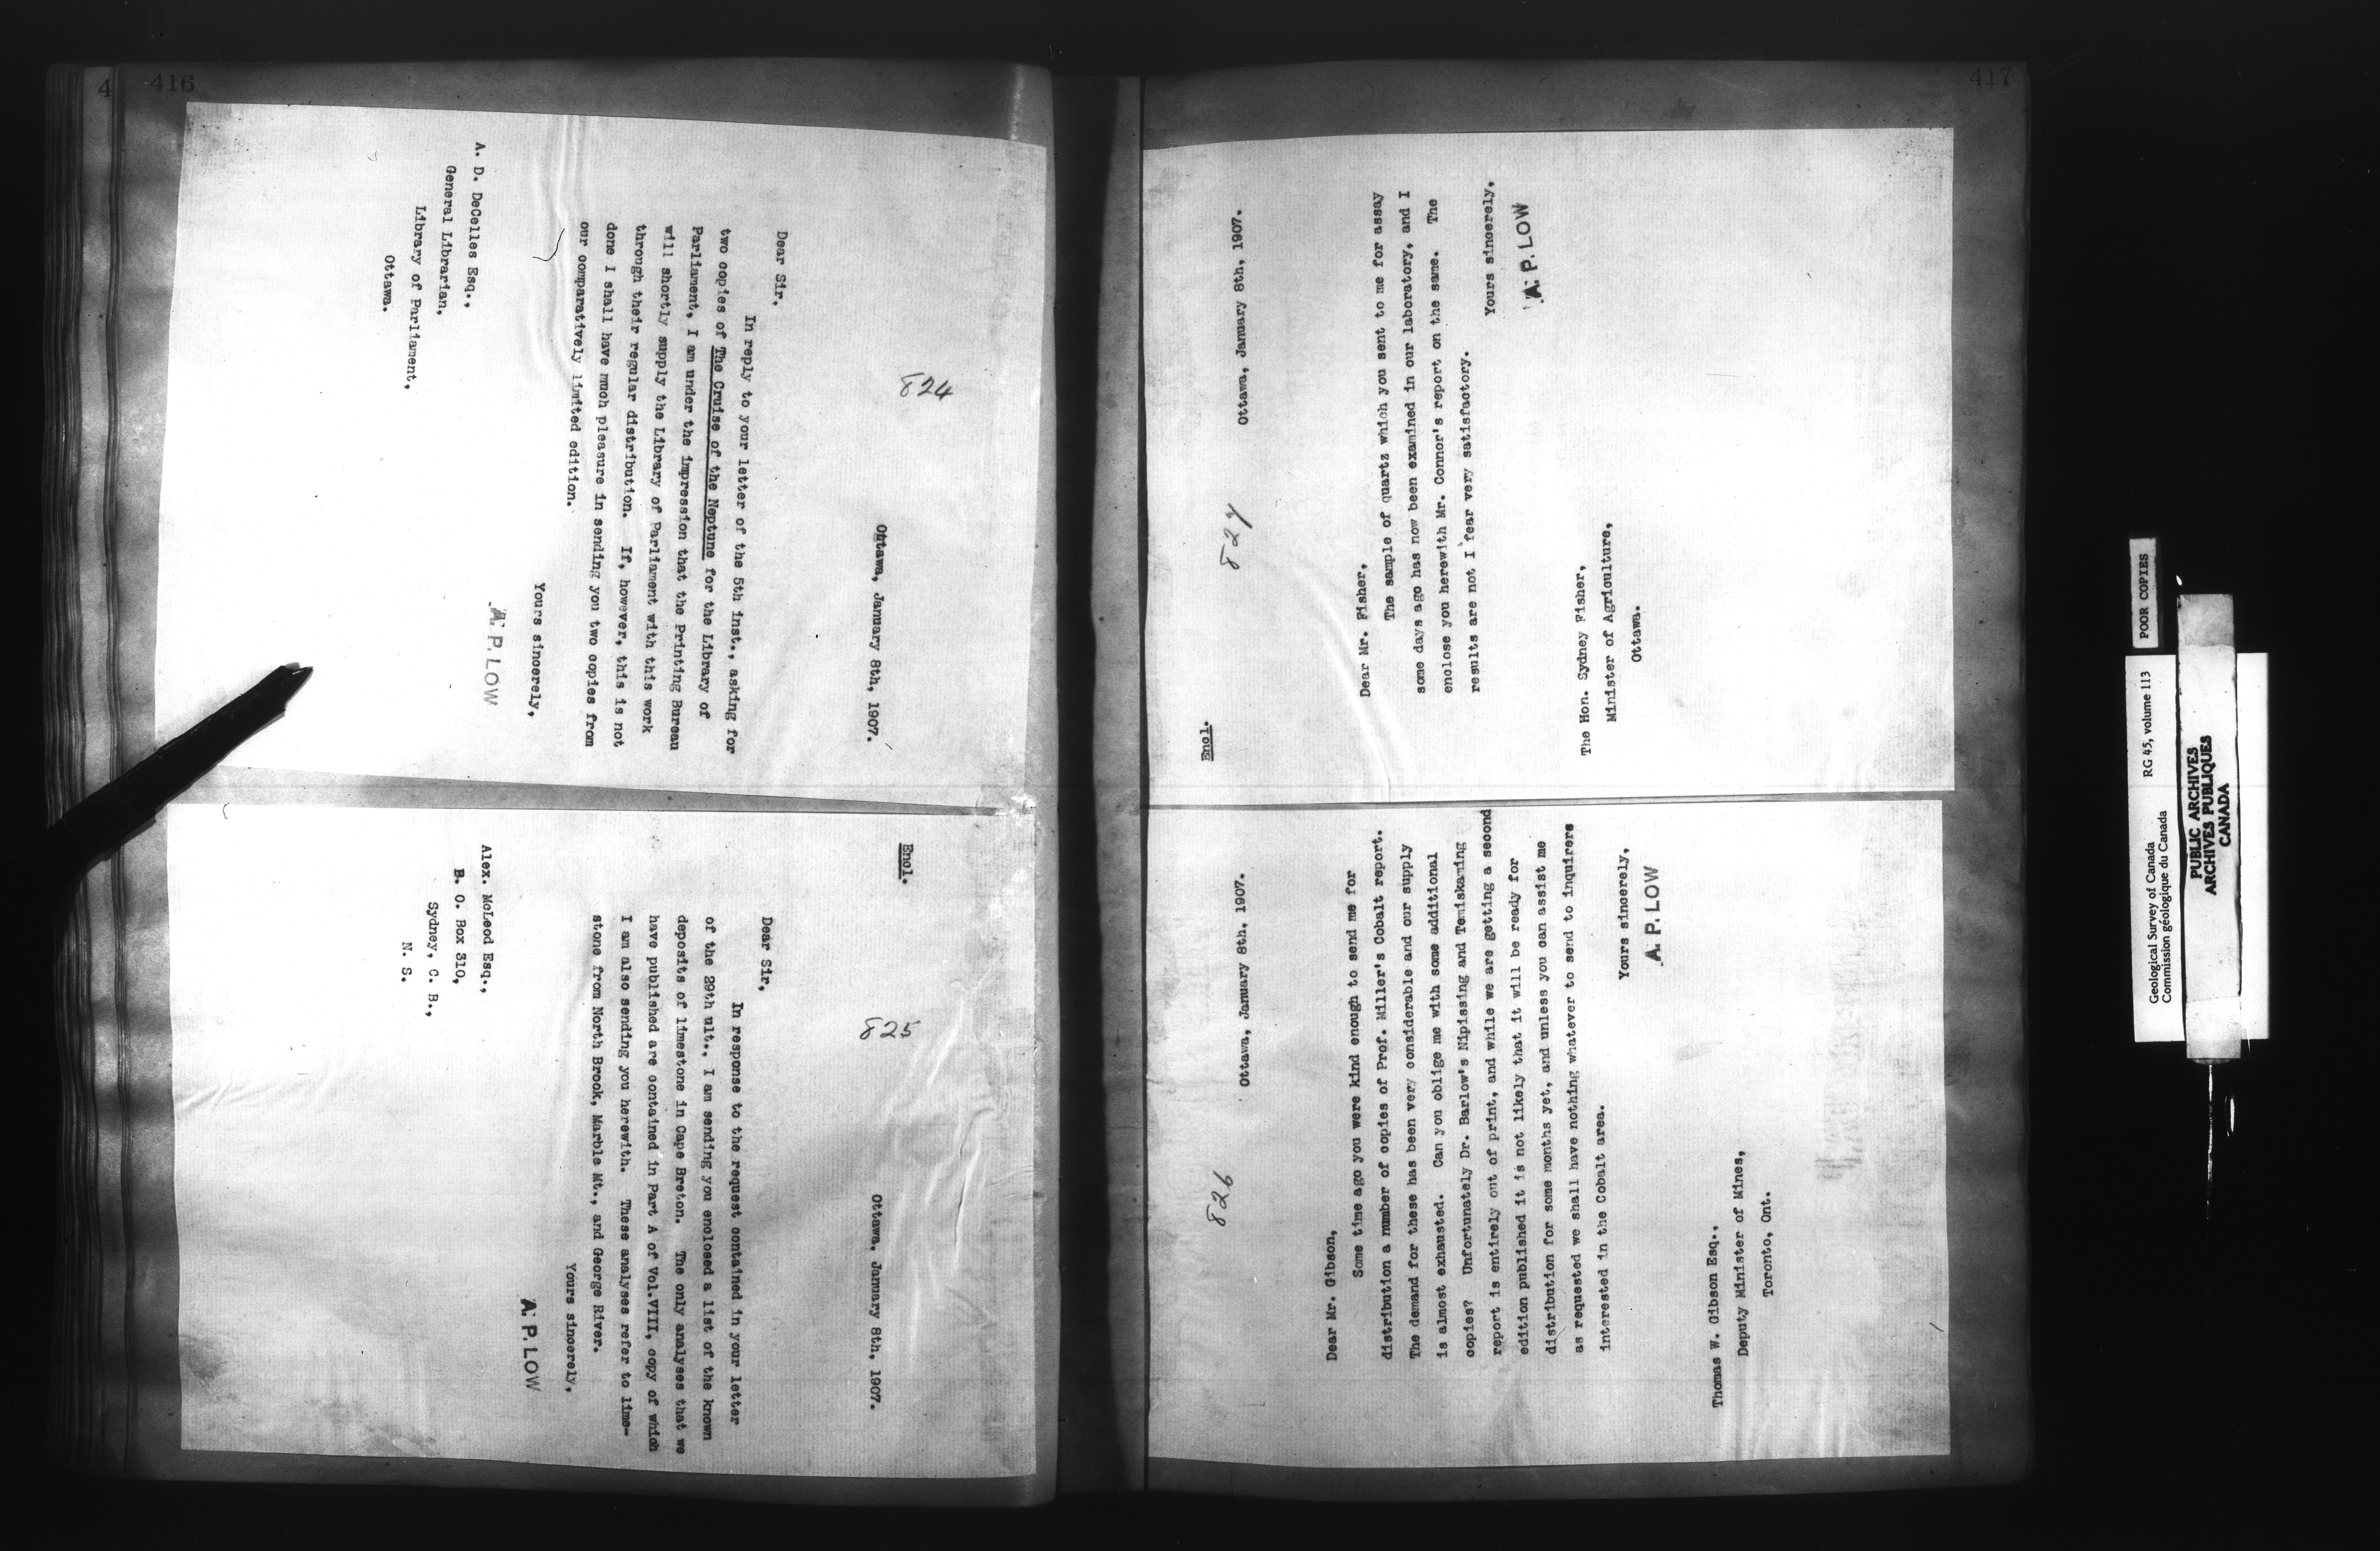 416
4
824
Ottawa, January 8th, 1907.
Dear Sir.
In reply to your letter of the 5th inst., asking for
two copies of The Cruise of the Neptune for the Library of
Parliament, I am under the impression that the Printing Bureau
will shortly supply the Library of Parliament with this work
through their regular distribution. If, however, this is not
done I shall have much pleasure in sending you two copies from
our comparatively limited edition.
Yours sincerely,
A. P. LOW
A. D. DeCelles Esq.,
General Librarian,
Library of Parliament,
Ottawa.
Encl.
825
Ottawa, January 8th, 1907.
Dear Sir,
In response to the request contained in your letter
of the 29th ult., I am sending you enclosed a list of the known
deposits of limestone in Cape Breton. The only analyses that we
have published are contained in Part A of Vol.VIII, copy of which
I am also sending you herewith. These analyses refer to lime-
stone from North Brook, Marble Mt., and George River.
Yours sincerely,
A. P. LOW
Alex. McLeod Esq.,
B. O. Box 310,
Sydney, C. B.,
N. S.
417
826
Ottawa, January 8th, 1907.
Dear Mr. Gibson,
Some time ago you were kind enough to send me for
distribution a number of copies of Prof. Miller's Cobalt report.
The demand for these has been very considerable and our supply
is almost exhausted. Can you oblige me with some additional
copies? Unfortunately Dr. Barlow's Nipissing and Temiskaming
report is entirely out of print, and while we are getting a second
edition published it is not likely that it will be ready for
distribution for some months yet, and unless you can assist me
as requested we shall have nothing whatever to send to inquirers
interested in the Cobalt area.
Yours sincerely,
A. P. LOW
Thomas W. Gibson Esq.,
Deputy Minister of Mines,
Toronto, Ont.
Encl.
827
Ottawa, January 8th, 1907.
Dear Mr. Fisher,
The sample of quartz which you sent to me for assay
some days ago has now been examined in our laboratory, and I
enclose you herewith Mr. Connor's report on the same. The
results are not I fear very satisfactory.
Yours sincerely,
A. P. LOW
The Hon. Sydney Fisher,
Minister of Agriculture,
Ottawa.
Geological Survey of Canada
Commission géologique du Canada
RG 45, volume 113
POOR COPIES
PUBLIC ARCHIVES
ARCHIVES PUBLIQUES
CANADA